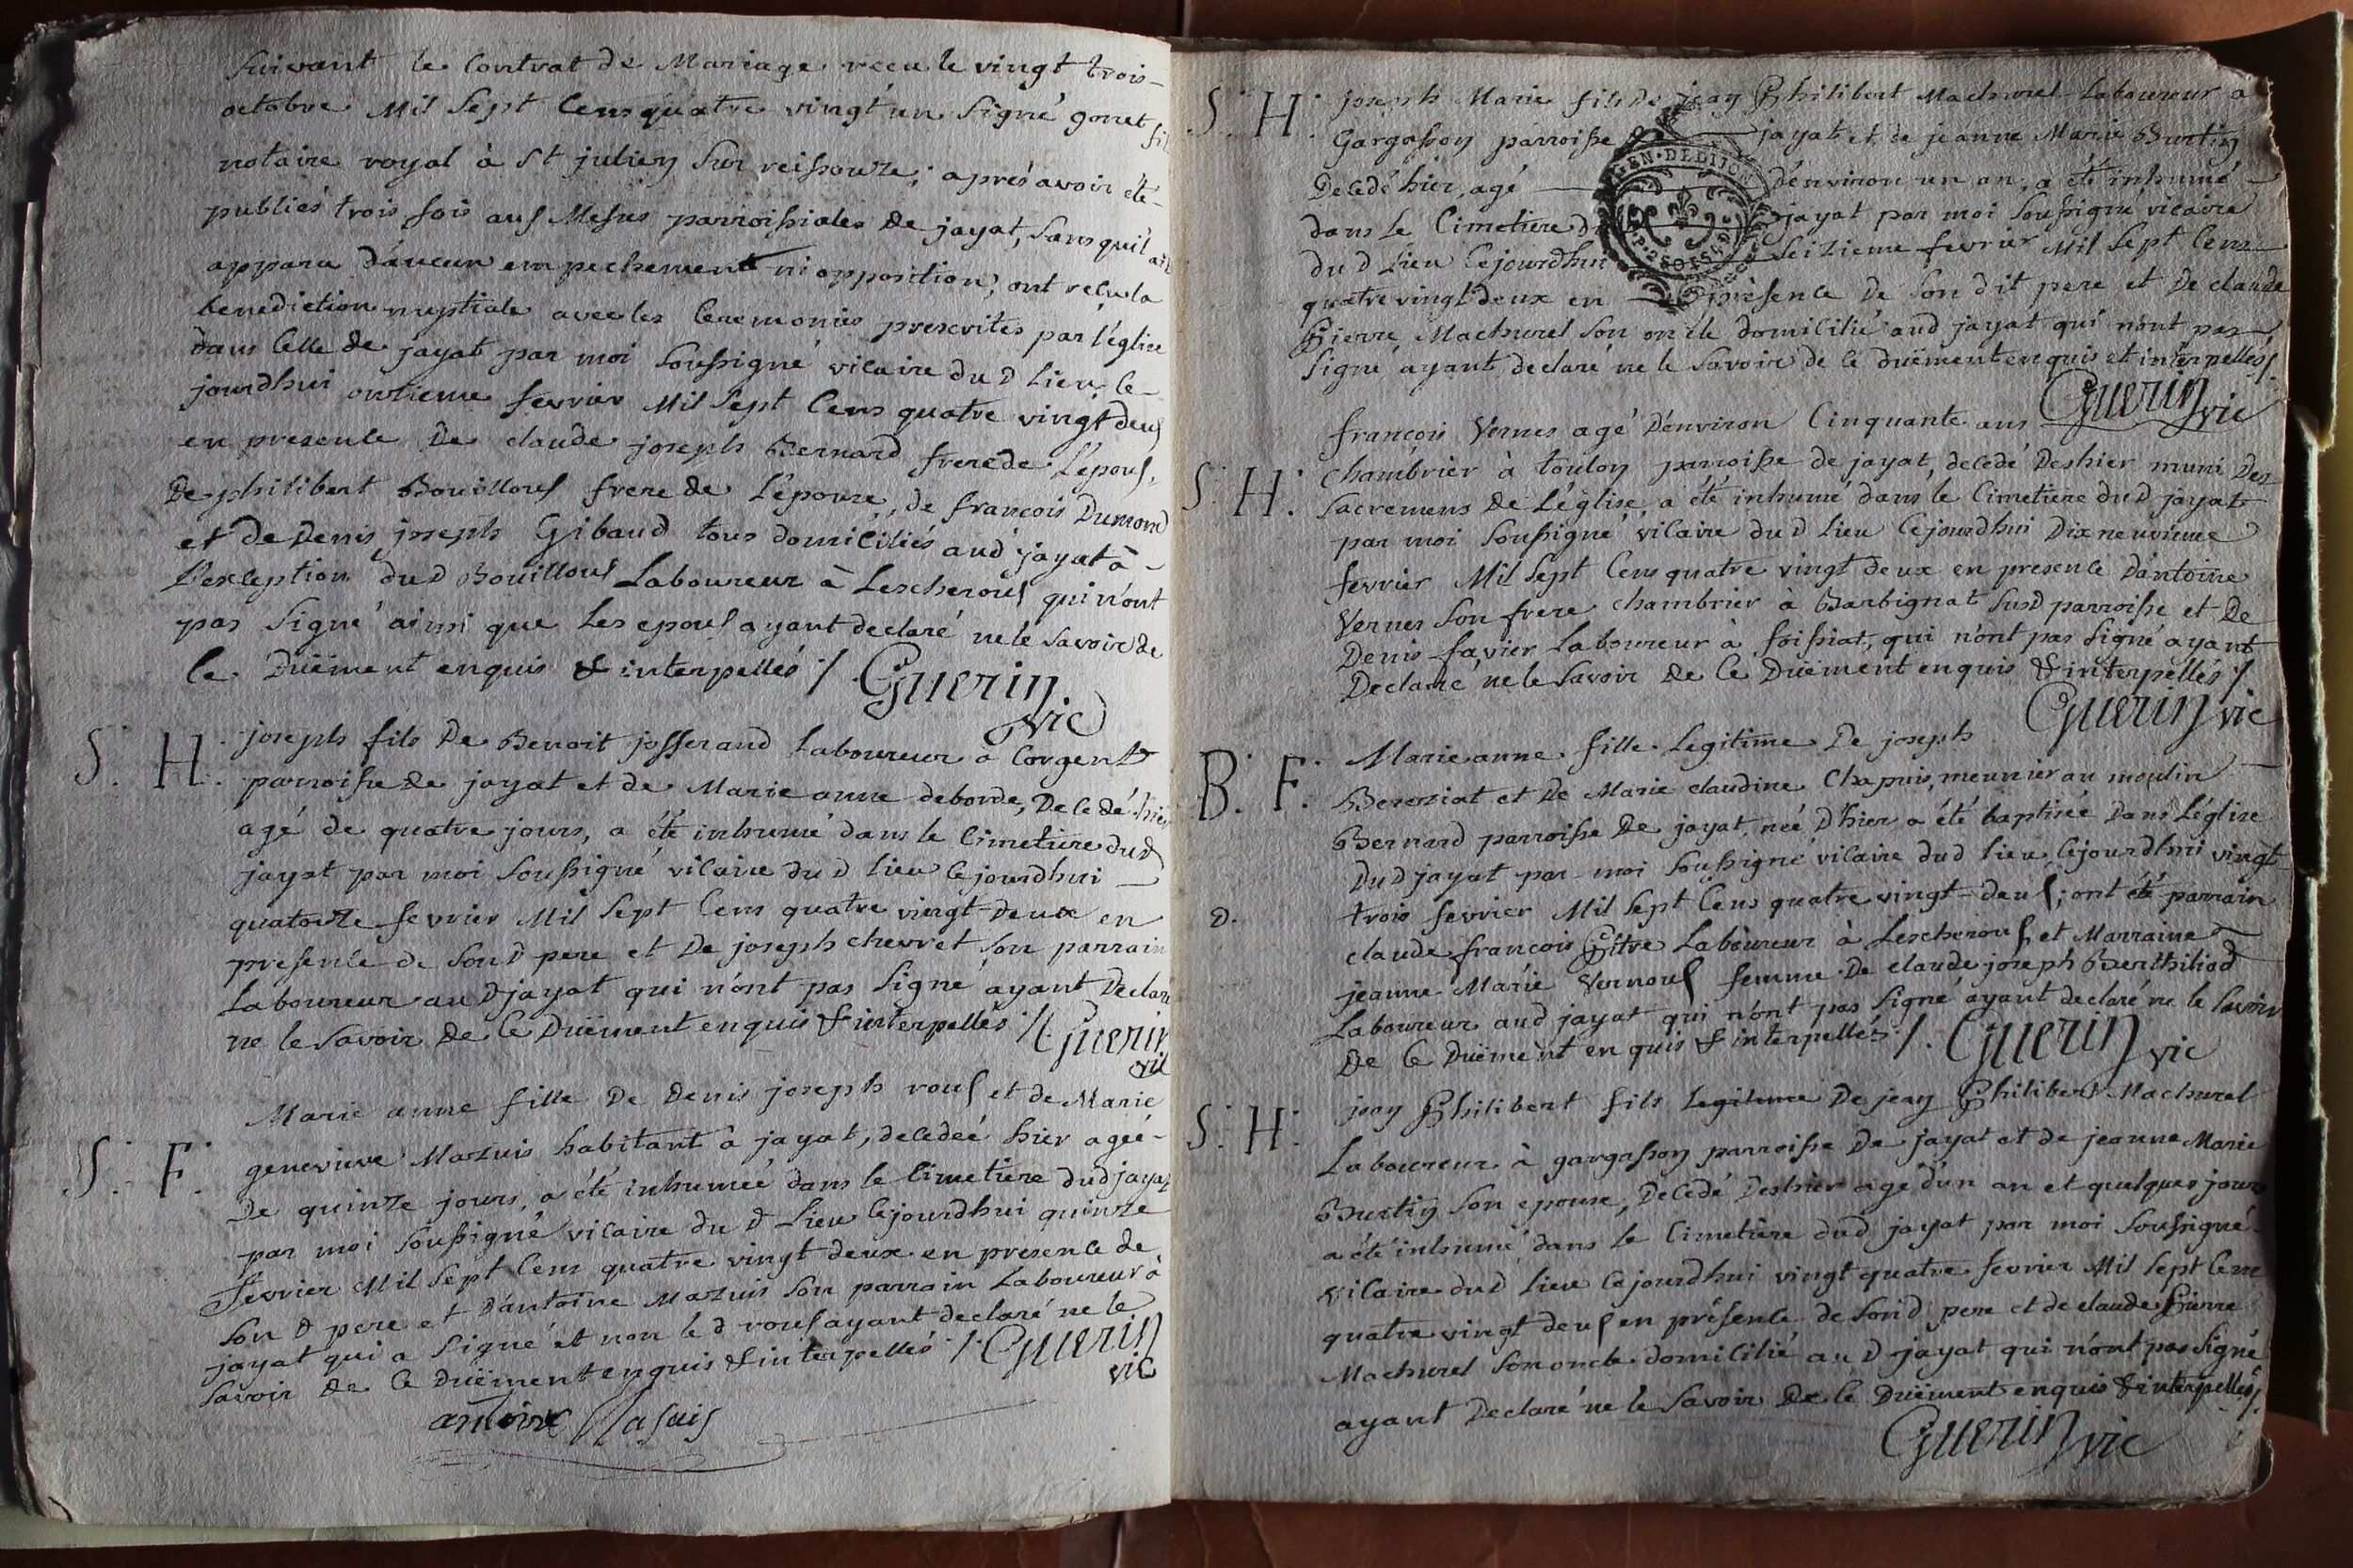 suivant le Contrat de Mariage recu le vingt trois
octobre Mil Sept Cens quatre vingt un Signé gonet fils
notaire royal à St julien Sur reissouze; après avoir été
publiés trois fois aus Messes parroissiales de jayat, Sans quil ait
apparu d'aucun empechement ni opposition, ont reçu la
benediction nuptiale avec les Ceremonies prescrites par l'église
dans Celle de jayat par moi Soussigné vicaire du d Lieu ce
jourdhui onzieme fevrier Mil Sept Cens quatre vingt deus
en presence De claude joseph Bernard frere de L'epous,
De philibert Bouillous frere de L'épouse, de francois Dumond
et de Denis joseph Gibaud tous domiciliés aud jayat à
L'exception dud Bouillous Laboureur à Lescherous qui n'ont
pas Signé ainsi que Les epous ayant declaré ne le Savoir de
ce Duëment enquis & interpellés ./. Guerin
vic
S. H. joseph fils De Benoit josserand Laboureur a Corgent
parroisse de jayat et de Marie anne deborde, Decedé hier
agé de quatre jours, a été inhumé dans le Cimetiere dud
jayat par moi Soussigné vicaire du d Lieu cejourdhui
quatorze fevrier Mil Sept Cens quatre vingt deux en
presence de Son d pere et De joseph chevret Son parrain
Laboureur au d jayat qui n'ont pas Signé ayant Declaré
ne le Savoir de Ce Duëment enquis & interpellés ./. Guerin
vic
Marie anne fille De Denis joseph rous et de Marie
S. F. genevieve Mazuis habitant à jayat, decedeé hier ageé
De quinze jours, a été inhumeé dans le Cimetiere dud jayat
par moi Soussigné vicaire du d Lieu cejourdhui quinze
fevrier Mil Sept Cens quatre vingt deux en presence de
Son d pere et D'antoine Mazuis Son parrain Laboureur à
jayat qui a Signé et non le d rous ayant declaré ne le
Savoir de Ce Duëment enquis & interpellés ./. Guerin
vic
antoine Masuis
S. H. joseph Marie fils de jean Philibert Machurel Laboureur a
Gargasson parroisse jayat et de jeanne Marie Burtin
Decedé hier, agé D'environ un an, a été inhumé
dans le Cimetiere de jayat par moi Soussigné vicaire
du d Lieu Cejourdhui Seizieme fevrier Mil Sept Cens
quatre vingt deux en présence De Son dit pere et De claude
Pierre Machurel Son oncle domicilié aud jayat qui n'ont pas
Signé ayant declaré ne le Savoir de Ce duëment enquis et interpellés ./.
Guerin vic
francois Vernes agé D'environ Cinquante ans
S. H. chambrier à toulon parroisse de jayat, decedé Deshier muni Des
Sacremens De L'église, a été inhumé dans le Cimetiere du d jayat
par moi Soussigné vicaire du d Lieu Cejourdhui Dixneuvieme
fevrier Mil Sept Cens quatre vingt deux en presence D'antoine
Vernes Son frere chambrier à Barbignat Susd parroisse et De
Denis favier Laboureur à foissiat, qui n'ont pas Signé ayant
Declaré ne le Savoir De Ce Duëment enquis & interpellés ./.
Guerin vic
Marie anne fille Legitime De joseph
B. F. Bereziat et De Marie claudine Chapuis, meunier au moulin
Bernard parroisse De jayat, neé D'hier a été baptisée Dans L'église
Dud jayat par moi Soussigné vicaire dud Lieu Cejourdhui vingt
D. trois fevrier Mil Sept Cens quatre vingt deus; ont été parrain
claude francois Pitre Laboureur à Lescherous et Marraine
jeanne Marie Vernous femme De claude joseph Berthiliod
Laboureur aud jayat qui n'ont pas Signé ayant declaré ne le Savoir
De Ce Duëment enquis & interpellés ./. Guerin vic
S. H. jean Philibert fils Legitime De jean Philibert Machurel
Laboureur à gargasson parroisse De jayat et de jeanne Marie
Burtin Son epouse, Decedé Deshier agé d'un an et quelques jours
a été inhumé dans le Cimetiere dud jayat par moi Soussigné
vicaire dud Lieu Cejourdhui vingt quatre fevrier Mil Sept Cens
quatre vingt deus en présence de Son d pere et de claude Pierre
Machurel Son oncle domicilié au d jayat qui n'ont pas Signé
ayant Declaré ne le Savoir De Ce Duëment enquis & interpellés ./.
Guerin vic